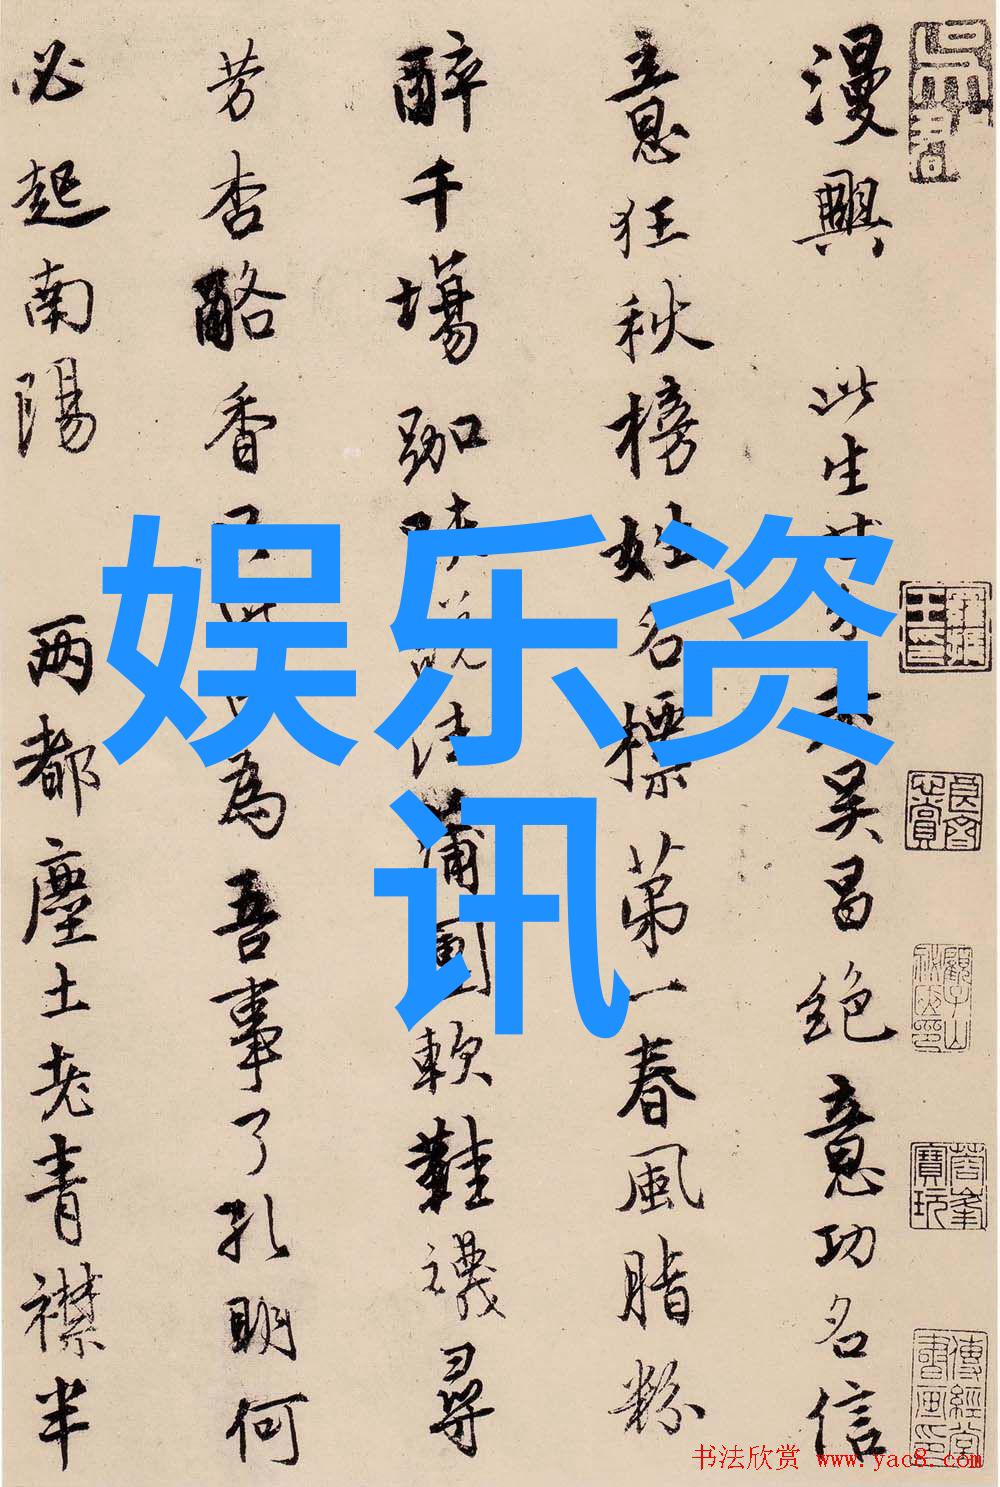 漫興 此生吳昌絕意功名信
意狂秋榜姓名標第一春風脂粉
醉千場跏趺說法蒲團軟鞋襪尋
芳杏酪香為吾事了孔明何
必起南陽 兩都塵土老青襟半
娱乐资
讯
书法欣赏 www.yac8.com